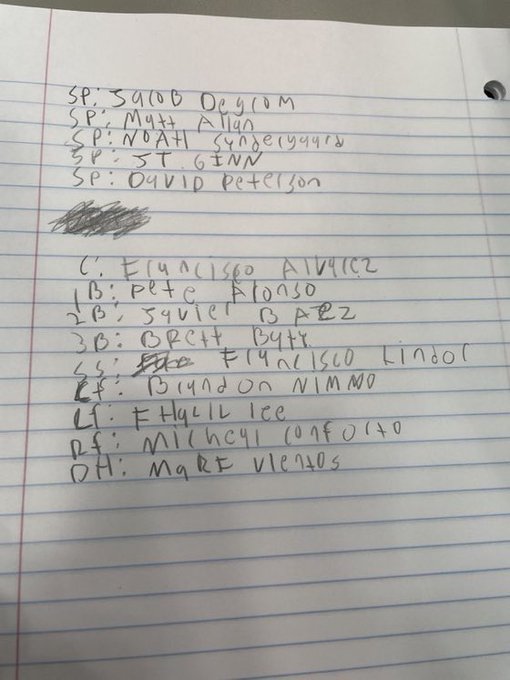 SP: JacoB Degrom
SP: Matt Allan
SP: NOAH Syndergaard
SP: JT. GINN
SP: David Peterson
C: Francisco Alvarez
1B: Pete Alonso
2B: Javier BAEZ
3B: BRett Baty
SS: Francisco Lindor
Cf: Brandon NIMMO
Lf: KHalil lee
Rf: Micheal conforto
DH: MaRK vientos